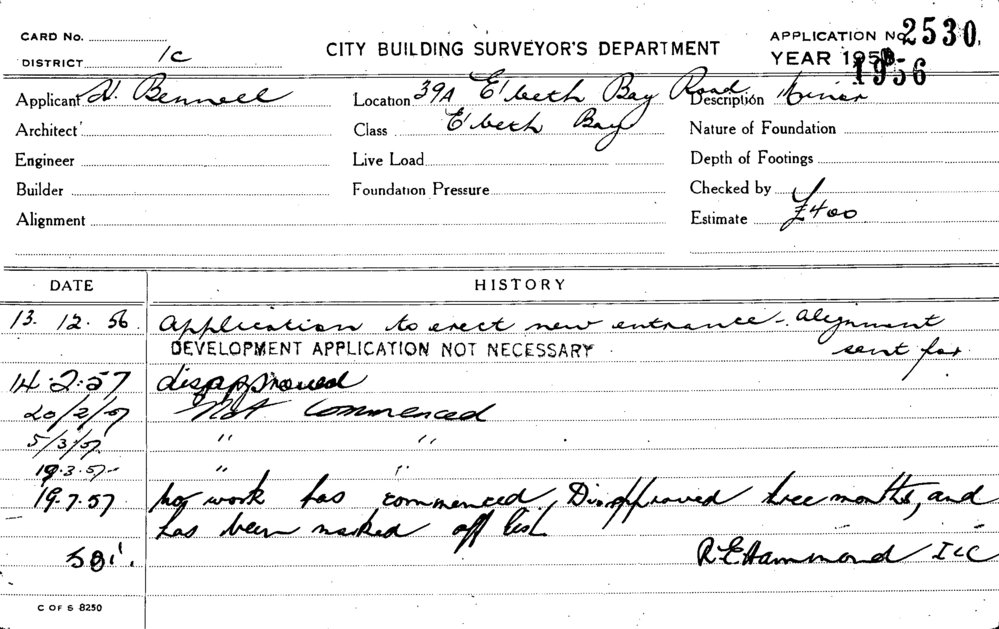 CARD No.
DISTRICT 1C
CITY BUILDING SURVEYOR'S DEPARTMENT
APPLICATION No. 2530
YEAR 195
1956
Applicant H. Bennell Location 39A E'beth Bay Road Description Minor
Architect Class E'beth Bay Nature of Foundation
Engineer Live Load Depth of Footings
Builder Foundation Pressure Checked by
Alignment Estimate £400
DATE HISTORY
13. 12. 56 Application to erect new entrance - Alignment
sent for
DEVELOPMENT APPLICATION NOT NECESSARY
14.2.57 disapproved
20/2/57 Not Commenced
5/3/57 " "
19.3.57 " "
19.7.57 No work has commenced, Disapproved three months, and
has been marked off list
R E Hammond
C OF S 8250